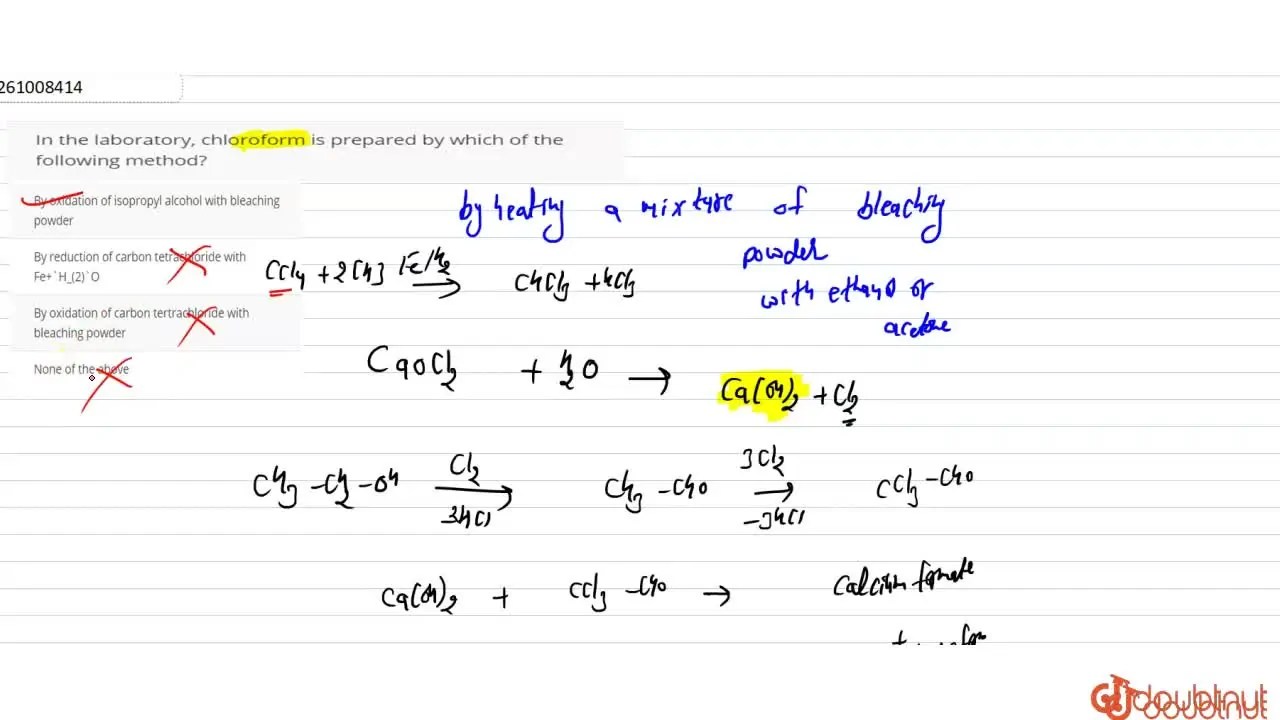 261008414
In the laboratory, chloroform is prepared by which of the
following method?
By oxidation of isopropyl alcohol with bleaching
powder
By reduction of carbon tetrachloride with
Fe+`H_(2)`O
By oxidation of carbon tertrachloride with
bleaching powder
None of the above
by heating a mixture of bleaching
powder
with ethanol or
acetone
CCl4 + 2[H] Fe/H2 → CHCl3 + HCl
CaOCl2 + H2O → Ca(OH)2 + Cl2
CH3-CH2-OH Cl2 → CH3-CHO 3Cl2 → CCl3-CHO
-3HCl
Ca(OH)2 + CCl3-CHO → Calcium formate
+
doubtnut